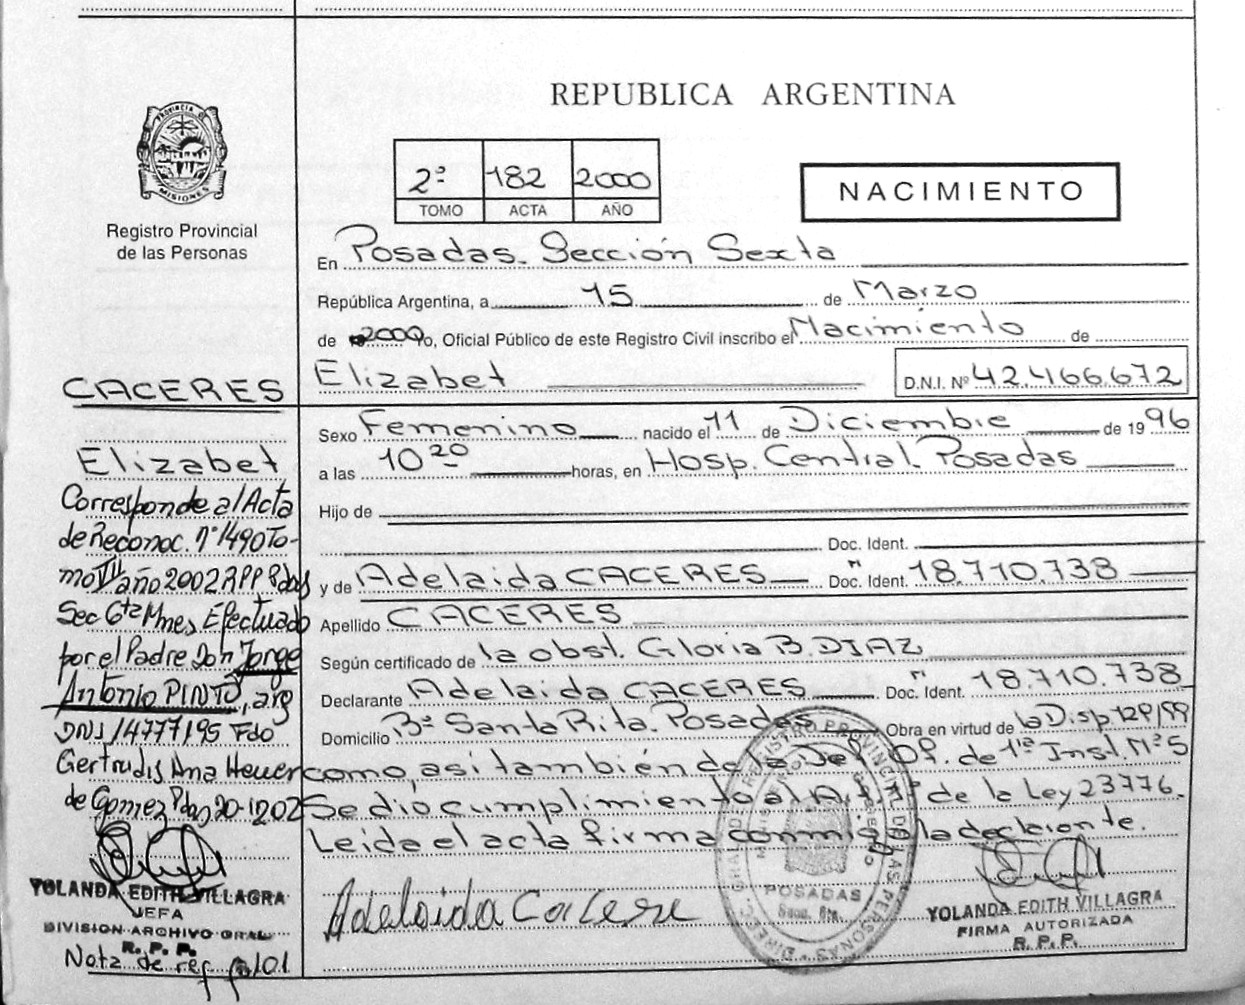 REPUBLICA ARGENTINA
PROVINCIA DE MISIONES
Registro Provincial
de las Personas
2º 182 2000
TOMO ACTA AÑO
NACIMIENTO
En Posadas. Sección Sexta
República Argentina, a 15 de Marzo
de 2000 yo, Oficial Público de este Registro Civil inscribo el Nacimiento de
Elizabet D.N.I. Nº 42.466.672
Sexo Femenino nacido el 11 de Diciembre de 1996
a las 10 20 horas, en Hosp. Central. Posadas
Hijo de
Doc. Ident.
y de Adelaida CACERES Doc. Ident. 18.710.738
Apellido CACERES
Según certificado de la obst. Gloria B. DIAZ
Declarante Adelaida CACERES Doc. Ident. 18.710.738
Domicilio Bº Santa Rita. Posadas Obra en virtud de la Disp 129/99
como, asi también de la Def. Of. de 1ra Inst. Nº 5
Se dió cumplimiento al Art. de la Ley 23776.
Leida el acta firma conmigo la declarante.
Adelaida Cacere
POSADAS
YOLANDA EDITH VILLAGRA
FIRMA AUTORIZADA
R. P. P.
CACERES
Elizabet
Corresponde al Acta
de Reconoc. nº 1490 To-
mo año 2002 RPP Pdas
Sec 6ta Mnes Efectuado
por el Padre Don Jorge
Antonio PINTO, arg
DNI 14777195 Fdo
Gertrudis Ana Heuer
de Gomez Pdas 20-12 02
YOLANDA EDITH VILLAGRA
JEFA
DIVISION ARCHIVO GRAL
R. P. P.
Nota de ref 101